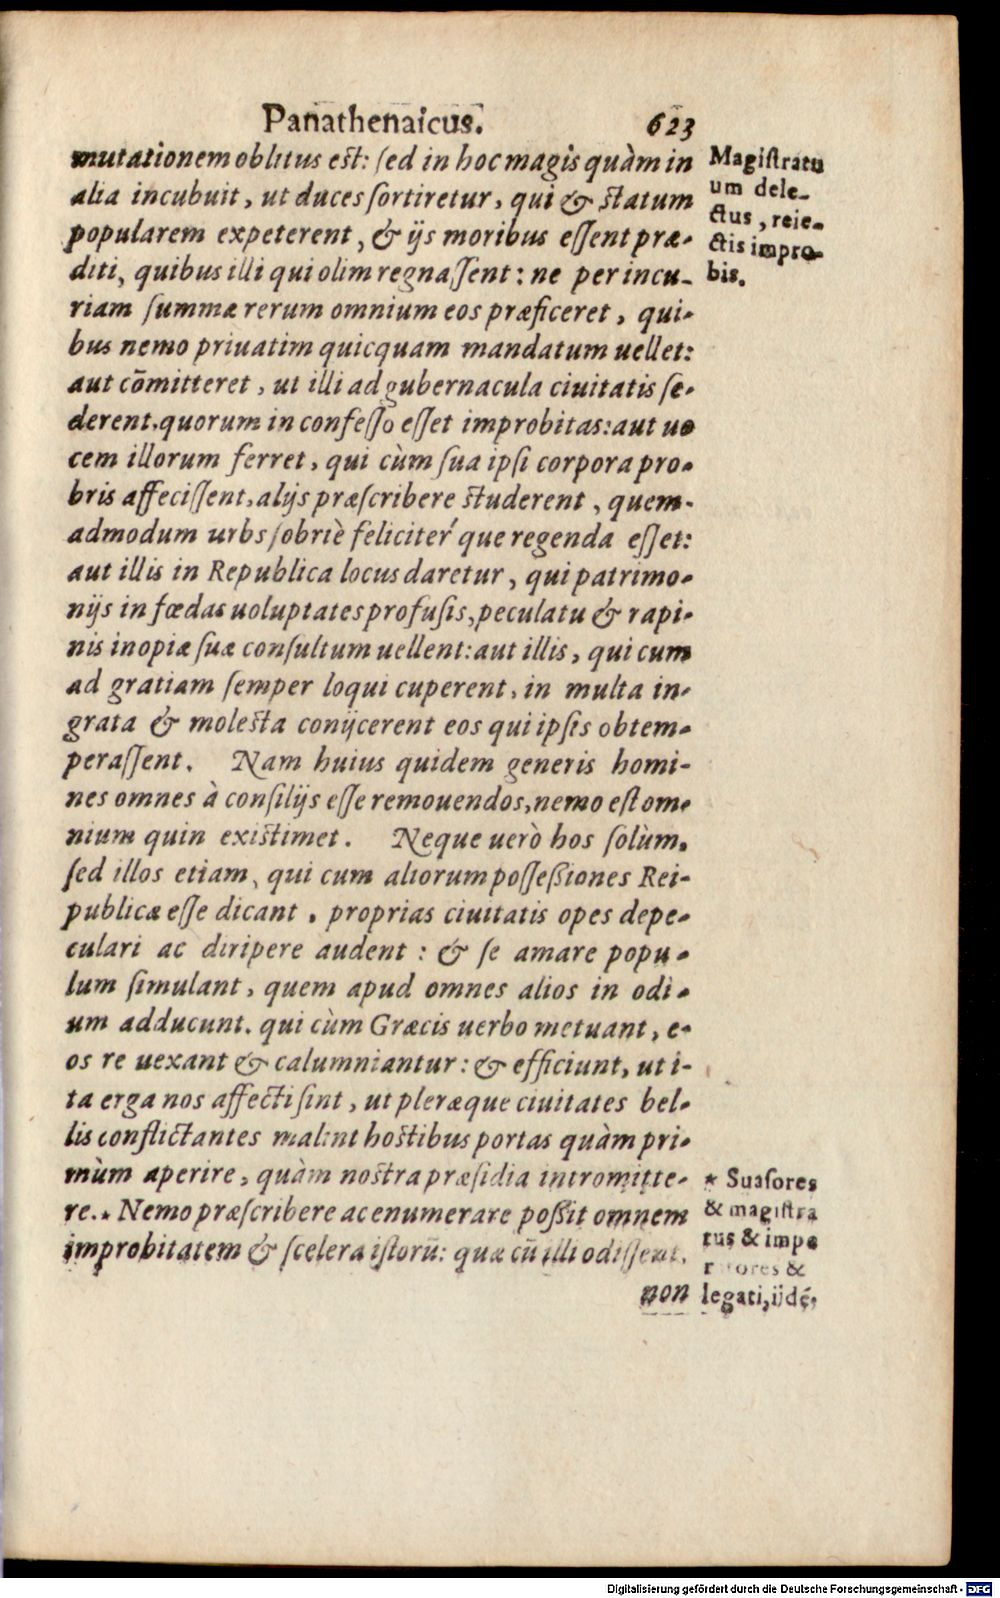 Panathenaicus. 623
mutationem oblitus est: sed in hoc magis quàm in
alia incubuit, ut duces sortiretur, qui & statum
popularem expeterent, & ijs moribus essent præ-
diti, quibus illi qui olim regnassent: ne per incu-
riam summæ rerum omnium eos præficeret, qui-
bus nemo priuatim quicquam mandatum uellet:
aut cõmitteret, ut illi ad gubernacula ciuitatis se-
derent, quorum in confesso esset improbitas: aut uo
cem illorum ferret, qui cùm sua ipsi corpora pro-
bris affecissent, alijs præscribere studerent, quem-
admodum urbs sobriè feliciteŕ que regenda esset:
aut illis in Republica locus daretur, qui patrimo-
nijs in fœdas uoluptates profusis, peculatu & rapi-
nis inopiæ suæ consultum uellent: aut illis, qui cum
ad gratiam semper loqui cuperent, in multa in-
grata & molesta conijcerent eos qui ipsis obtem-
perassent. Nam huius quidem generis homi-
nes omnes à consilijs esse remouendos, nemo est om-
nium quin existimet. Neque uerò hos solùm,
sed illos etiam, qui cum aliorum possessiones Rei-
publicæ esse dicant, proprias ciuitatis opes depe-
culari ac diripere audent: & se amare popu-
lum simulant, quem apud omnes alios in odi-
um adducunt. qui cùm Græcis uerbo metuant, e-
os re uexant & calumniantur: & efficiunt, ut i-
ta erga nos affecti sint, ut pleræque ciuitates bel-
lis conflictantes malint hostibus portas quàm pri-
mùm aperire, quàm nostra præsidia intromitte-
re.* Nemo præscribere ac enumerare possit omnem
improbitatem & scelera istorũ: quæ cũ illi odissent,
non
Magistratu
um dele-
ctus, reie-
ctis impro-
bis.
* Suasores
& magistra
tus & impe
&
legati, ijdé,
Digitalisierung gefördert durch die Deutsche Forschungsgemeinschaft - DFG